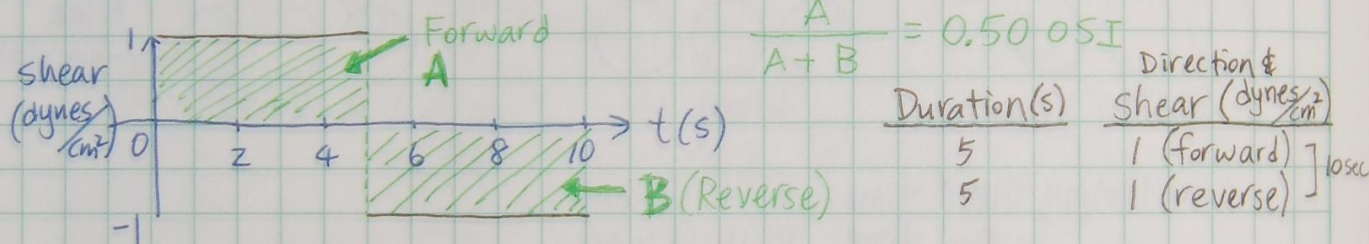 1
shear
(dynes/cm²)
0
-1
2 4 6 8 10
t(s)
Forward
A
B (Reverse)
A
A + B
= 0.50 OSI
Duration(s)
Direction &
Shear (dynes/cm²)
5 1 (forward)
5 1 (reverse)
10sec